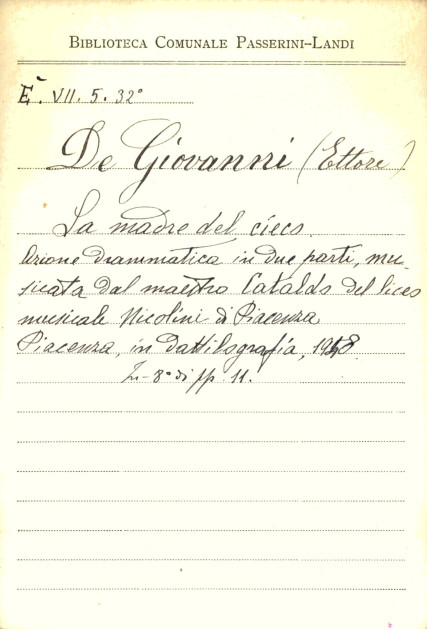 BIBLIOTECA COMUNALE PASSERINI-LANDI
E. VII. 5. 32°
De Giovanni (Ettore)
La madre del cieco.
Azione drammatica in due parti, mu-
sicata dal maestro Cataldo del liceo
musicale Nicolini di Piacenza
Piacenza, in dattilografia, 1948
In-8° di pp. 11.